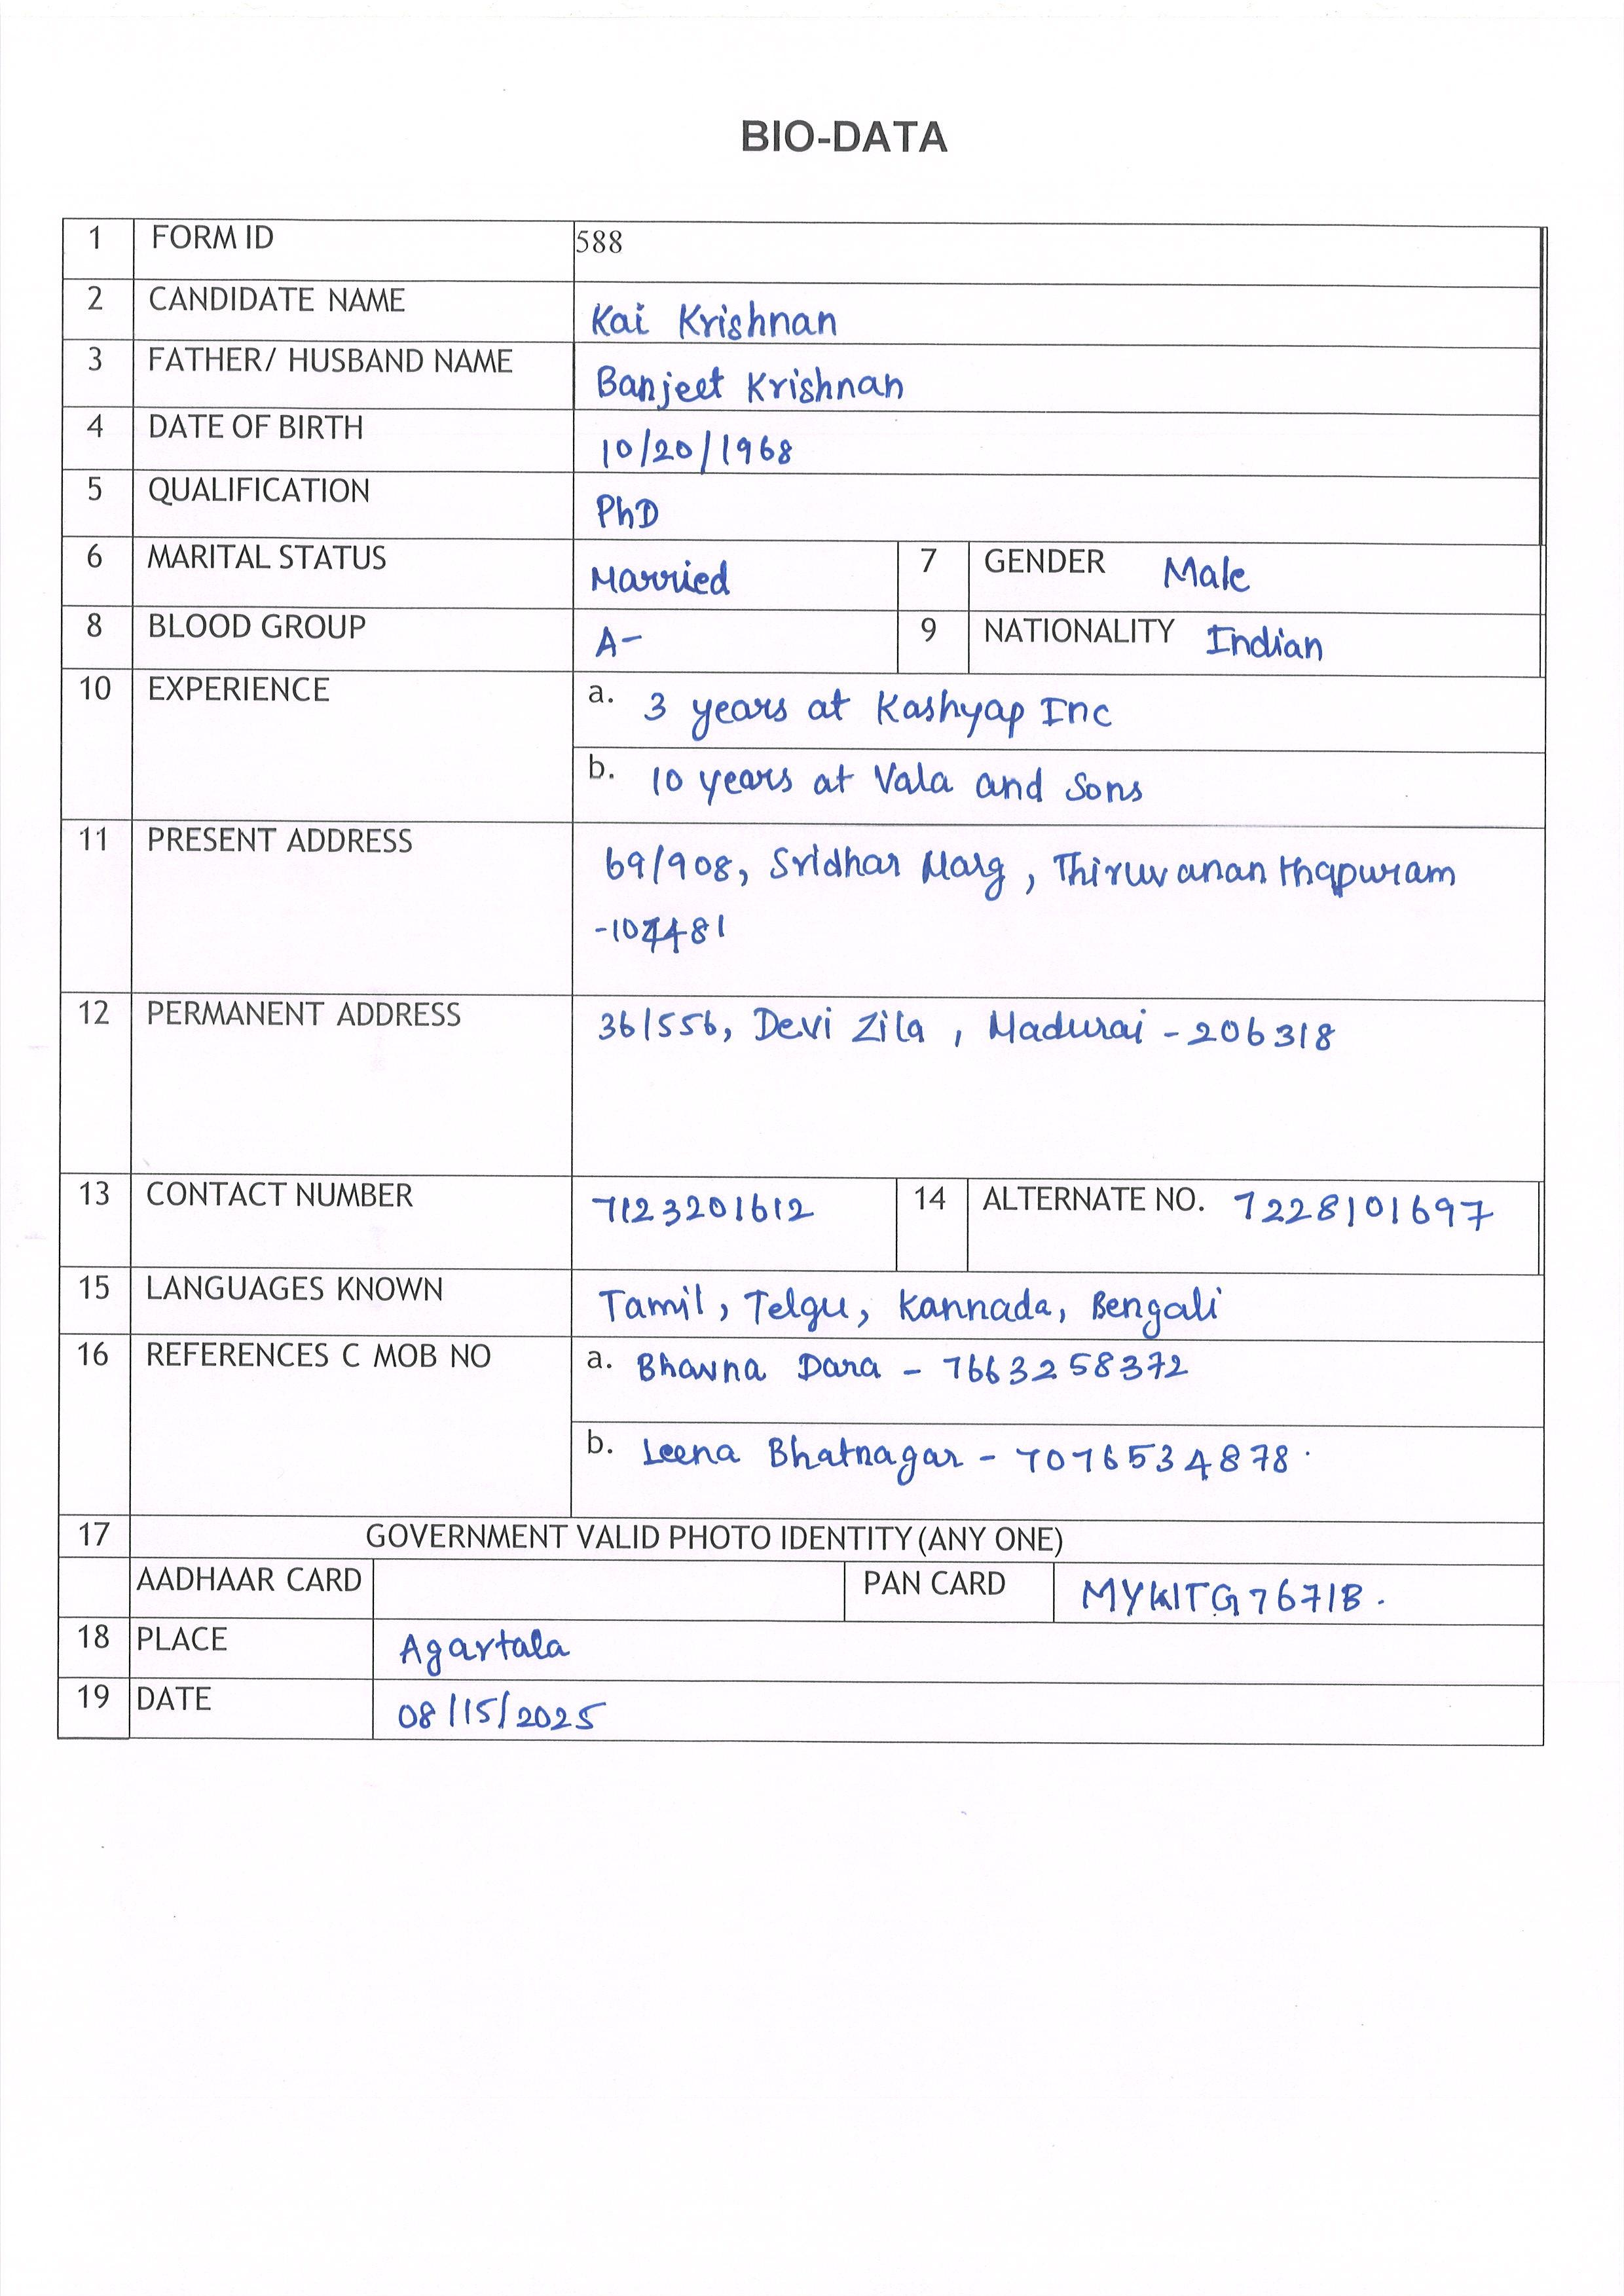 BIO-DATA
1 FORM ID 588
2 CANDIDATE NAME Kai Krishnan
3 FATHER/ HUSBAND NAME Banjeet Krishnan
4 DATE OF BIRTH 10/20/1968
5 QUALIFICATION PhD
6 MARITAL STATUS Married 7 GENDER Male
8 BLOOD GROUP A- 9 NATIONALITY Indian
10 EXPERIENCE a. 3 years at Kashyap Inc
b. 10 years at Vala and Sons
11 PRESENT ADDRESS 69/908, Sridhar Marg, Thiruvananthapuram
12 PERMANENT ADDRESS 36/556, Devi Zila, Madurai - 206318
13 CONTACT NUMBER 7123201612 14 ALTERNATE NO. 7228101697
15 LANGUAGES KNOWN Tamil, Telgu, Kannada, Bengali
16 REFERENCES C MOB NO a. Bhavna Dara - 7663258372
b. Leena Bhatnagar - 7076534878.
17 GOVERNMENT VALID PHOTO IDENTITY (ANY ONE)
AADHAAR CARD PAN CARD
18 PLACE Agartala
19 DATE 08/15/2025